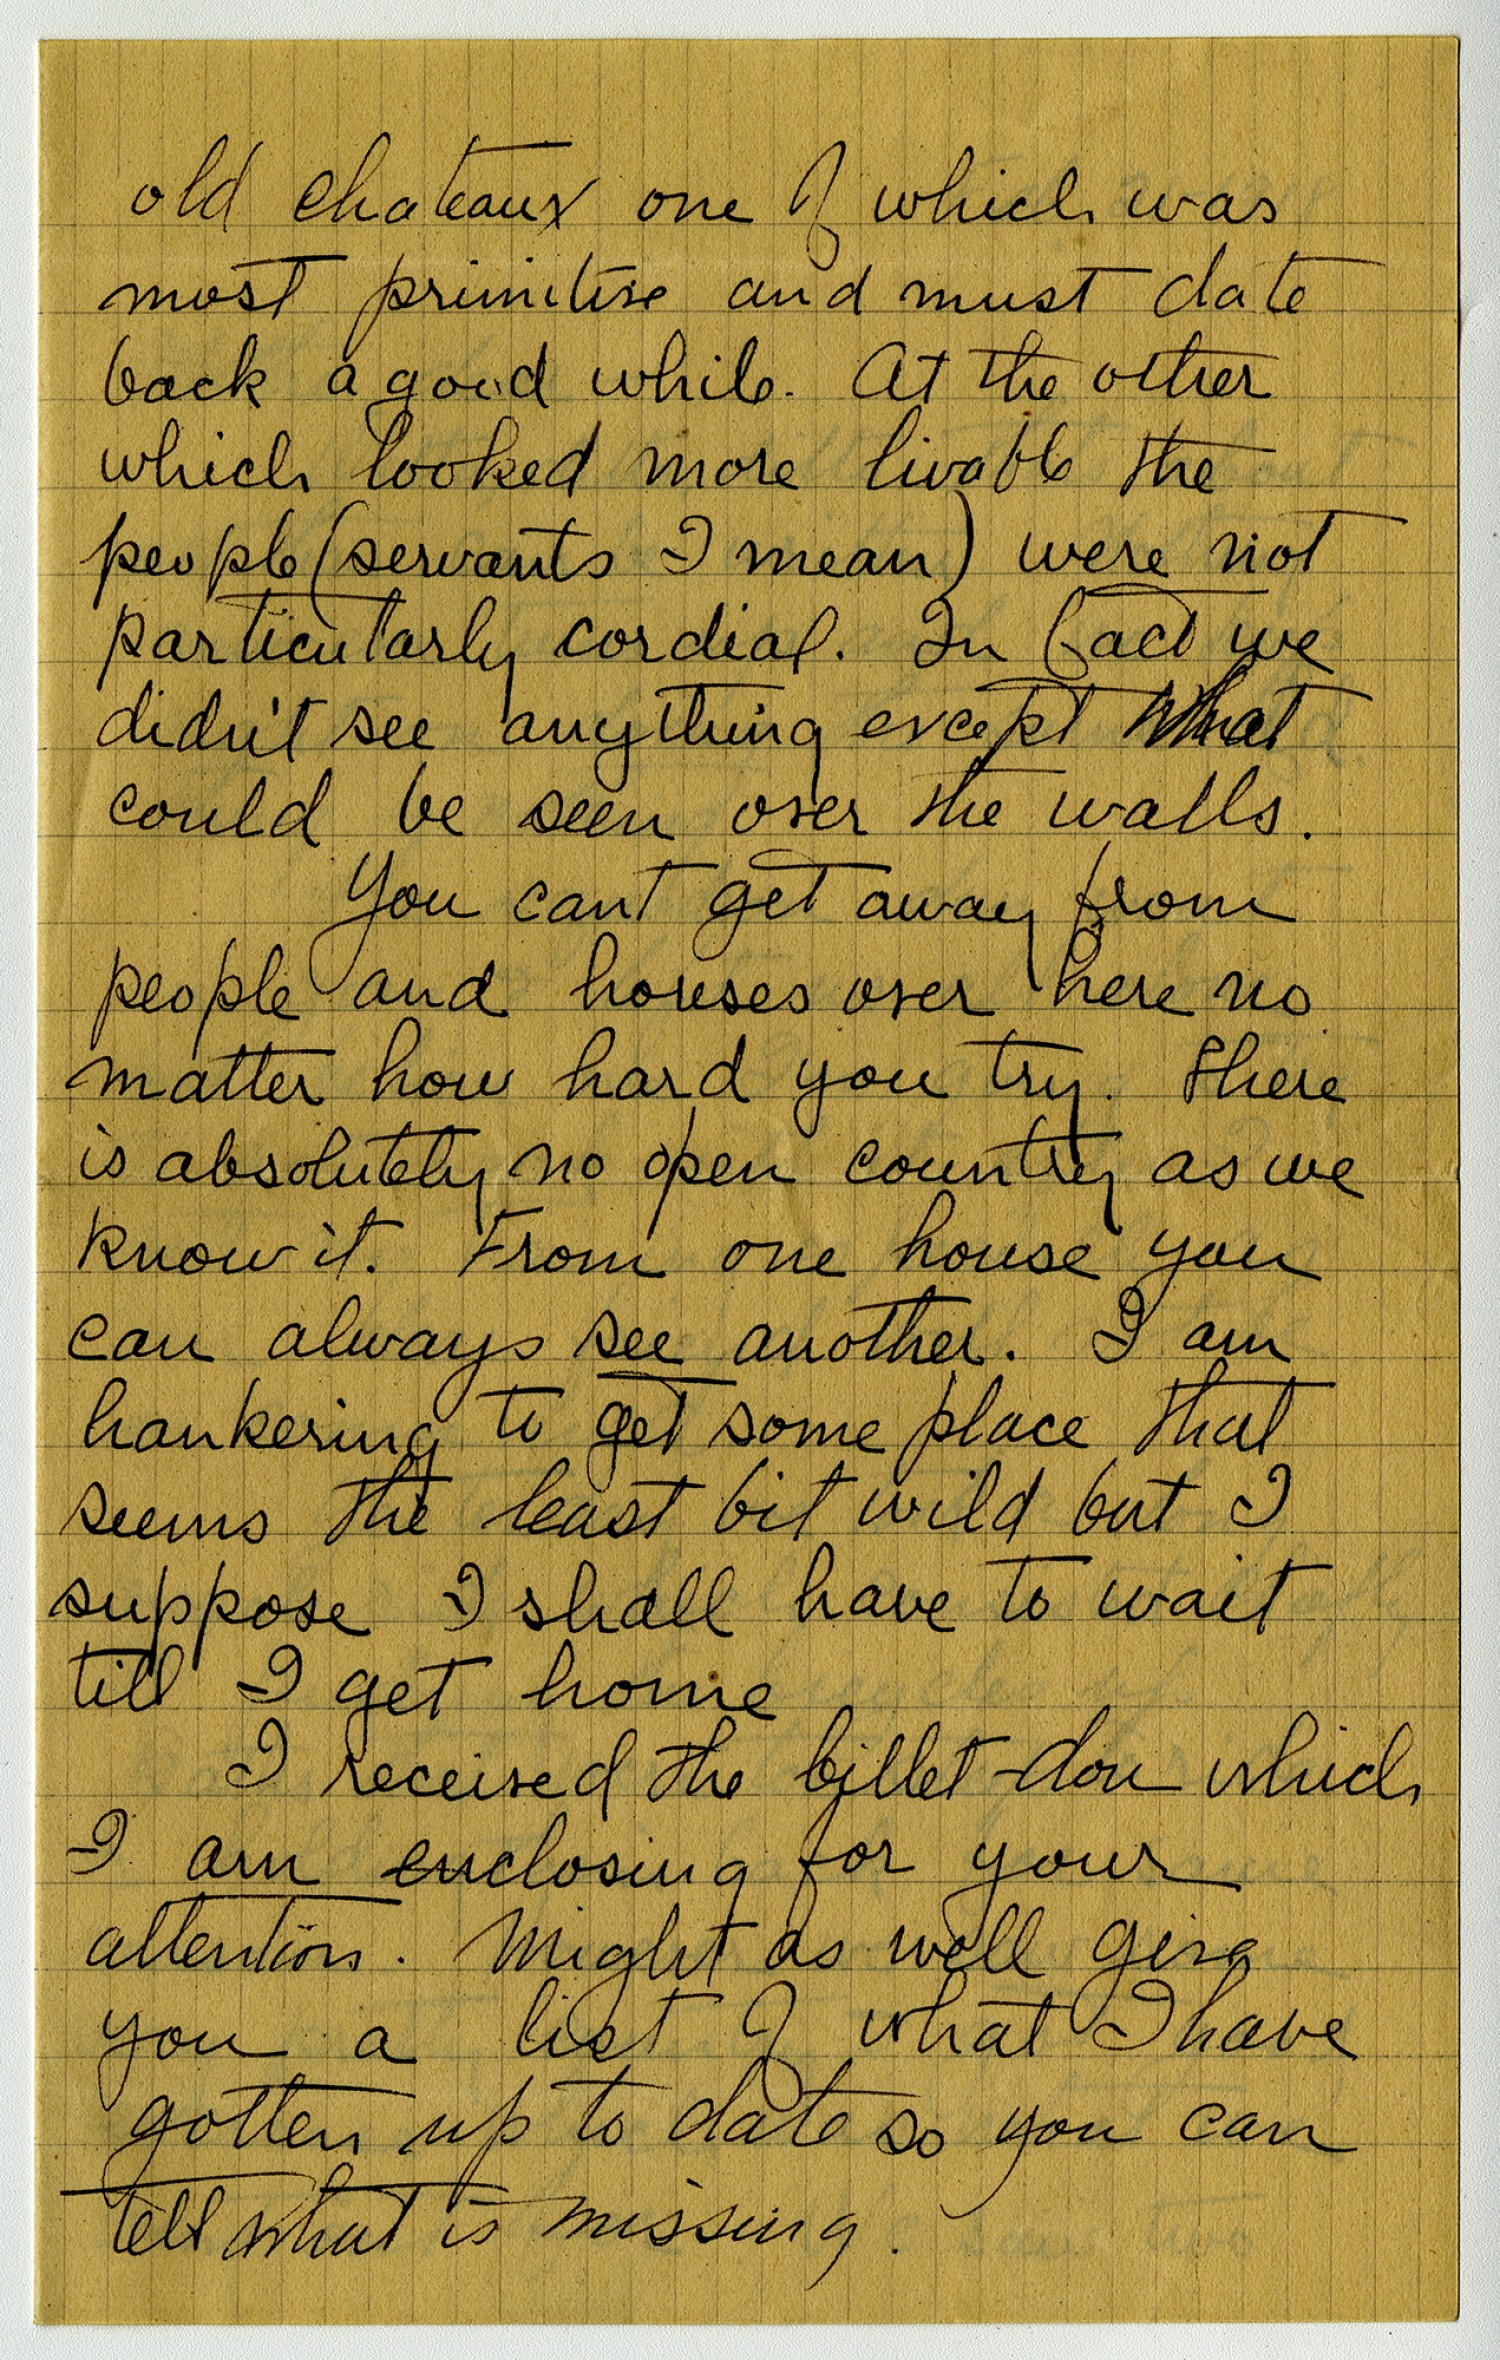 old chateaux one of which was
most primitive and must date
back a good while. At the other
which looked more livable the
people (servants I mean) were not
particularly cordial. In fact we
didn't see anything except what
could be seen over the walls.
You cant get away from
people and houses over here no
matter how hard you try. There
is absolutely no open country as we
know it. From one house you
can always see another. I am
hankering to get some place that
seems the least bit wild but I
suppose I shall have to wait
till I get home
I received the billet-dou which
I am enclosing for your
attention. Might as well give
you a list of what I have
gotten up to date so you can
tell what is missing.